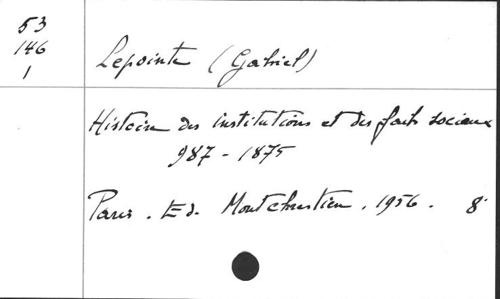 53
146
1
Lepointe (Gabriel)
Histoire des institutions et des faits sociaux
987 - 1875
Paris. Ed. Montchrestien. 1956. 8°